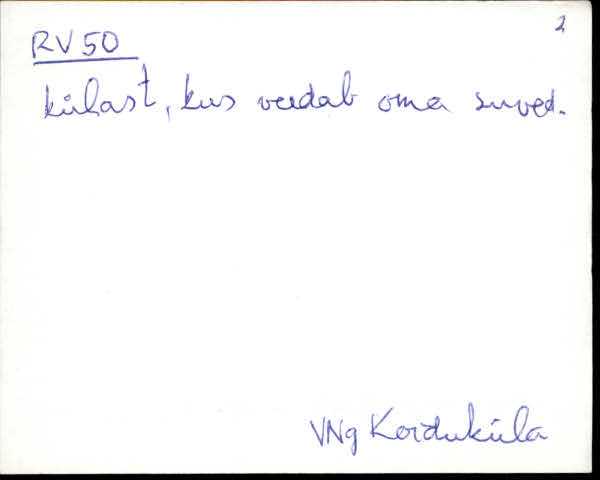 2
RV 50
külast, kus veedab oma suved.
VNg Korduküla